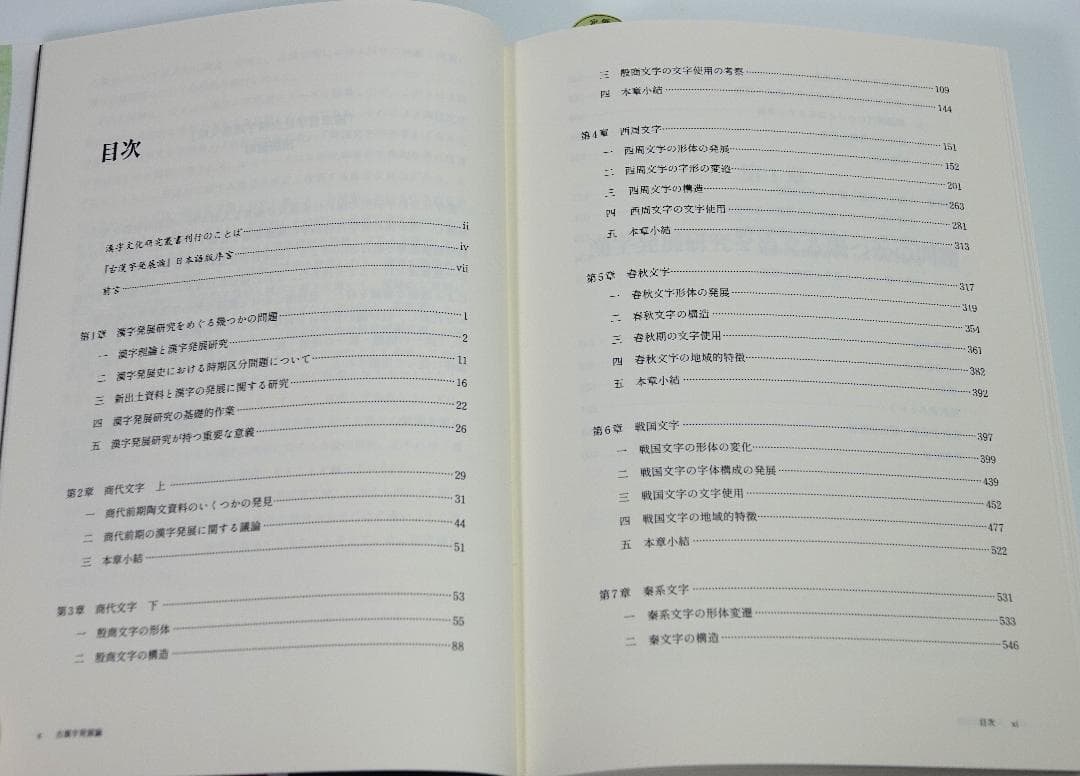 目次
漢字文化研究叢書刊行のことば ii
『古漢字発展論』日本語版序言 iv
前言 vii
第1章 漢字発展研究をめぐる幾つかの問題 1
一 漢字理論と漢字発展研究 2
二 漢字発展史における時期区分問題について 11
三 新出土資料と漢字の発展に関する研究 16
四 漢字発展研究の基礎的作業 22
五 漢字発展研究が持つ重要な意義 26
第2章 商代文字 上 29
一 商代前期陶文資料のいくつかの発見 31
二 商代前期の漢字発展に関する議論 44
三 本章小結 51
第3章 商代文字 下 53
一 殷商文字の形体 55
二 殷商文字の構造 88
x 古漢字発展論
三 殷商文字の文字使用の考察 109
四 本章小結 144
第4章 西周文字 151
一 西周文字の形体の発展 152
二 西周文字の字形の変造 201
三 西周文字の構造 263
四 西周文字の文字使用 281
五 本章小結 313
第5章 春秋文字 317
一 春秋文字形体の発展 319
二 春秋文字の構造 354
三 春秋期の文字使用 361
四 春秋文字の地域的特徴 382
五 本章小結 392
第6章 戦国文字 397
一 戦国文字の形体の変化 399
二 戦国文字の字体構成の発展 439
三 戦国文字の文字使用 452
四 戦国文字の地域的特徴 477
五 本章小結 522
第7章 秦系文字 531
一 秦系文字の形体変遷 533
二 秦文字の構造 546
目次 xi